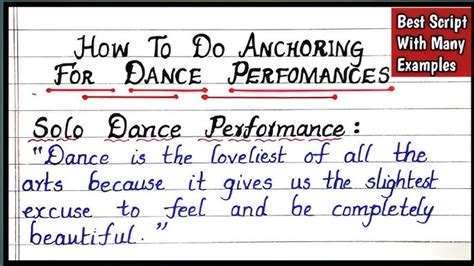 How To Do Anchoring
For Dance Perfomances
Best Script
With Many
Examples
Solo Dance Performance :
"Dance is the loveliest of all the
arts because it gives us the slightest
excuse to feel and be completely
beautiful."